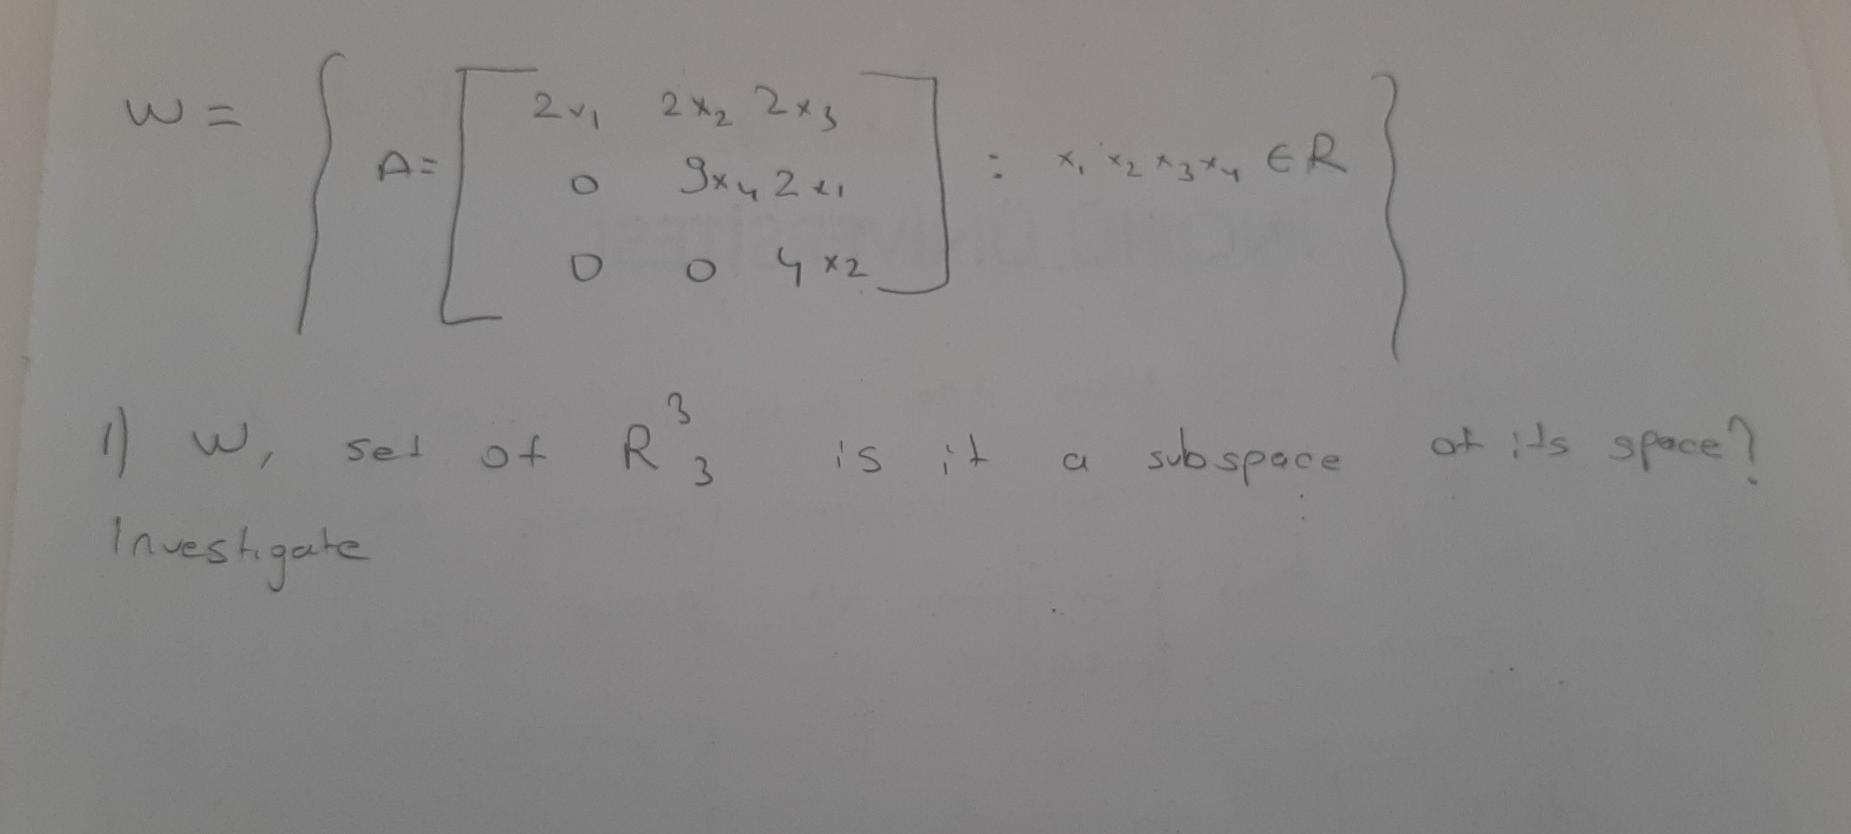 W = { A = [ 2x₁ 2x₂ 2x₃
0 9x₄ 2x₁ : x₁ x₂ x₃ x₄ ∈ R }
0 0 4x₂ ]
1) W, set of R³₃ is it a subspace of its space?
Investigate